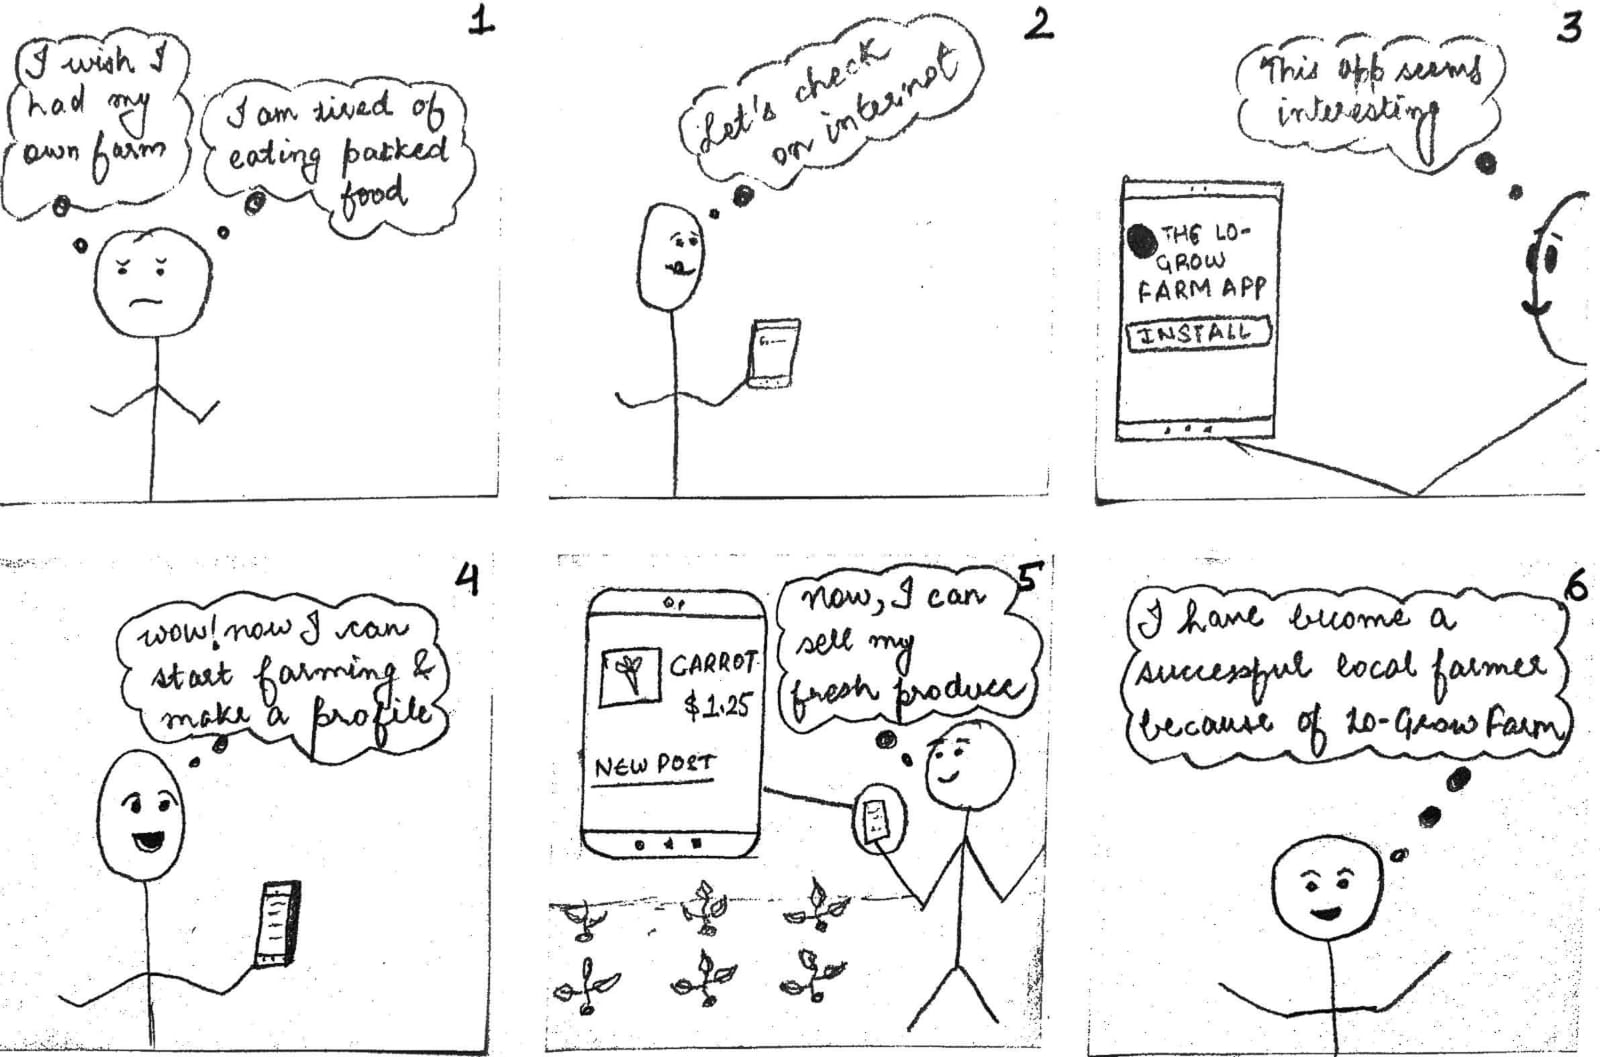 1
I wish I
had my
own farm
I am tired of
eating packed
food
2
Let's check
on internet
3
This app seems
interesting
THE LO-
GROW
FARM APP
INSTALL
4
wow! now I can
start farming &
make a profile
5
now, I can
sell my
fresh produce
CARROT
$1.25
NEW POST
6
I have become a
successful local farmer
because of Lo-Grow Farm